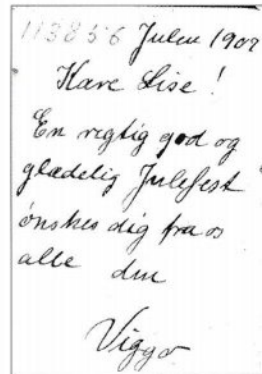 113856 Julen 1902
Kære Lise!
En rigtig god og
glædelig Julefest
ønskes dig fra os
alle din
Viggo